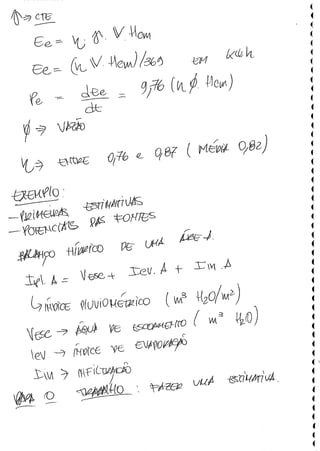 ⇒ CTE
Ee = η. γ. V. Hem
Ee = (η V. Hem)/369 EM kWh
Pe = dEe/dt = 9,76 (η Ø. Hem)
Ø ⇒ VAZÃO
η ⇒ ENTRE 0,76 e 0,87 (MÉDIA 0,82)
EXEMPLO:
- PRIMEIRAS ESTIMATIVAS
- POTENCIAIS DAS FONTES
BALANÇO HÍDRICO DE UMA ÁREA.
Ipl. A = Vesc + Iev. A + Iin. A
↳ ÍNDICE PLUVIOMÉTRICO (m³ H₂O/m²)
Vesc → ÁGUA DE ESCOAMENTO (m³ H₂O)
Iev → ÍNDICE DE EVAPORAÇÃO
Iin → INFILTRAÇÃO
PARA O TRABALHO: FAZER UMA ESTIMATIVA.